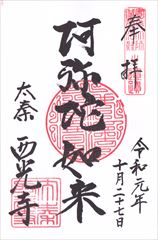 奉拝
阿弥陀如来
太秦
西光寺
令和元年
十月二十七日